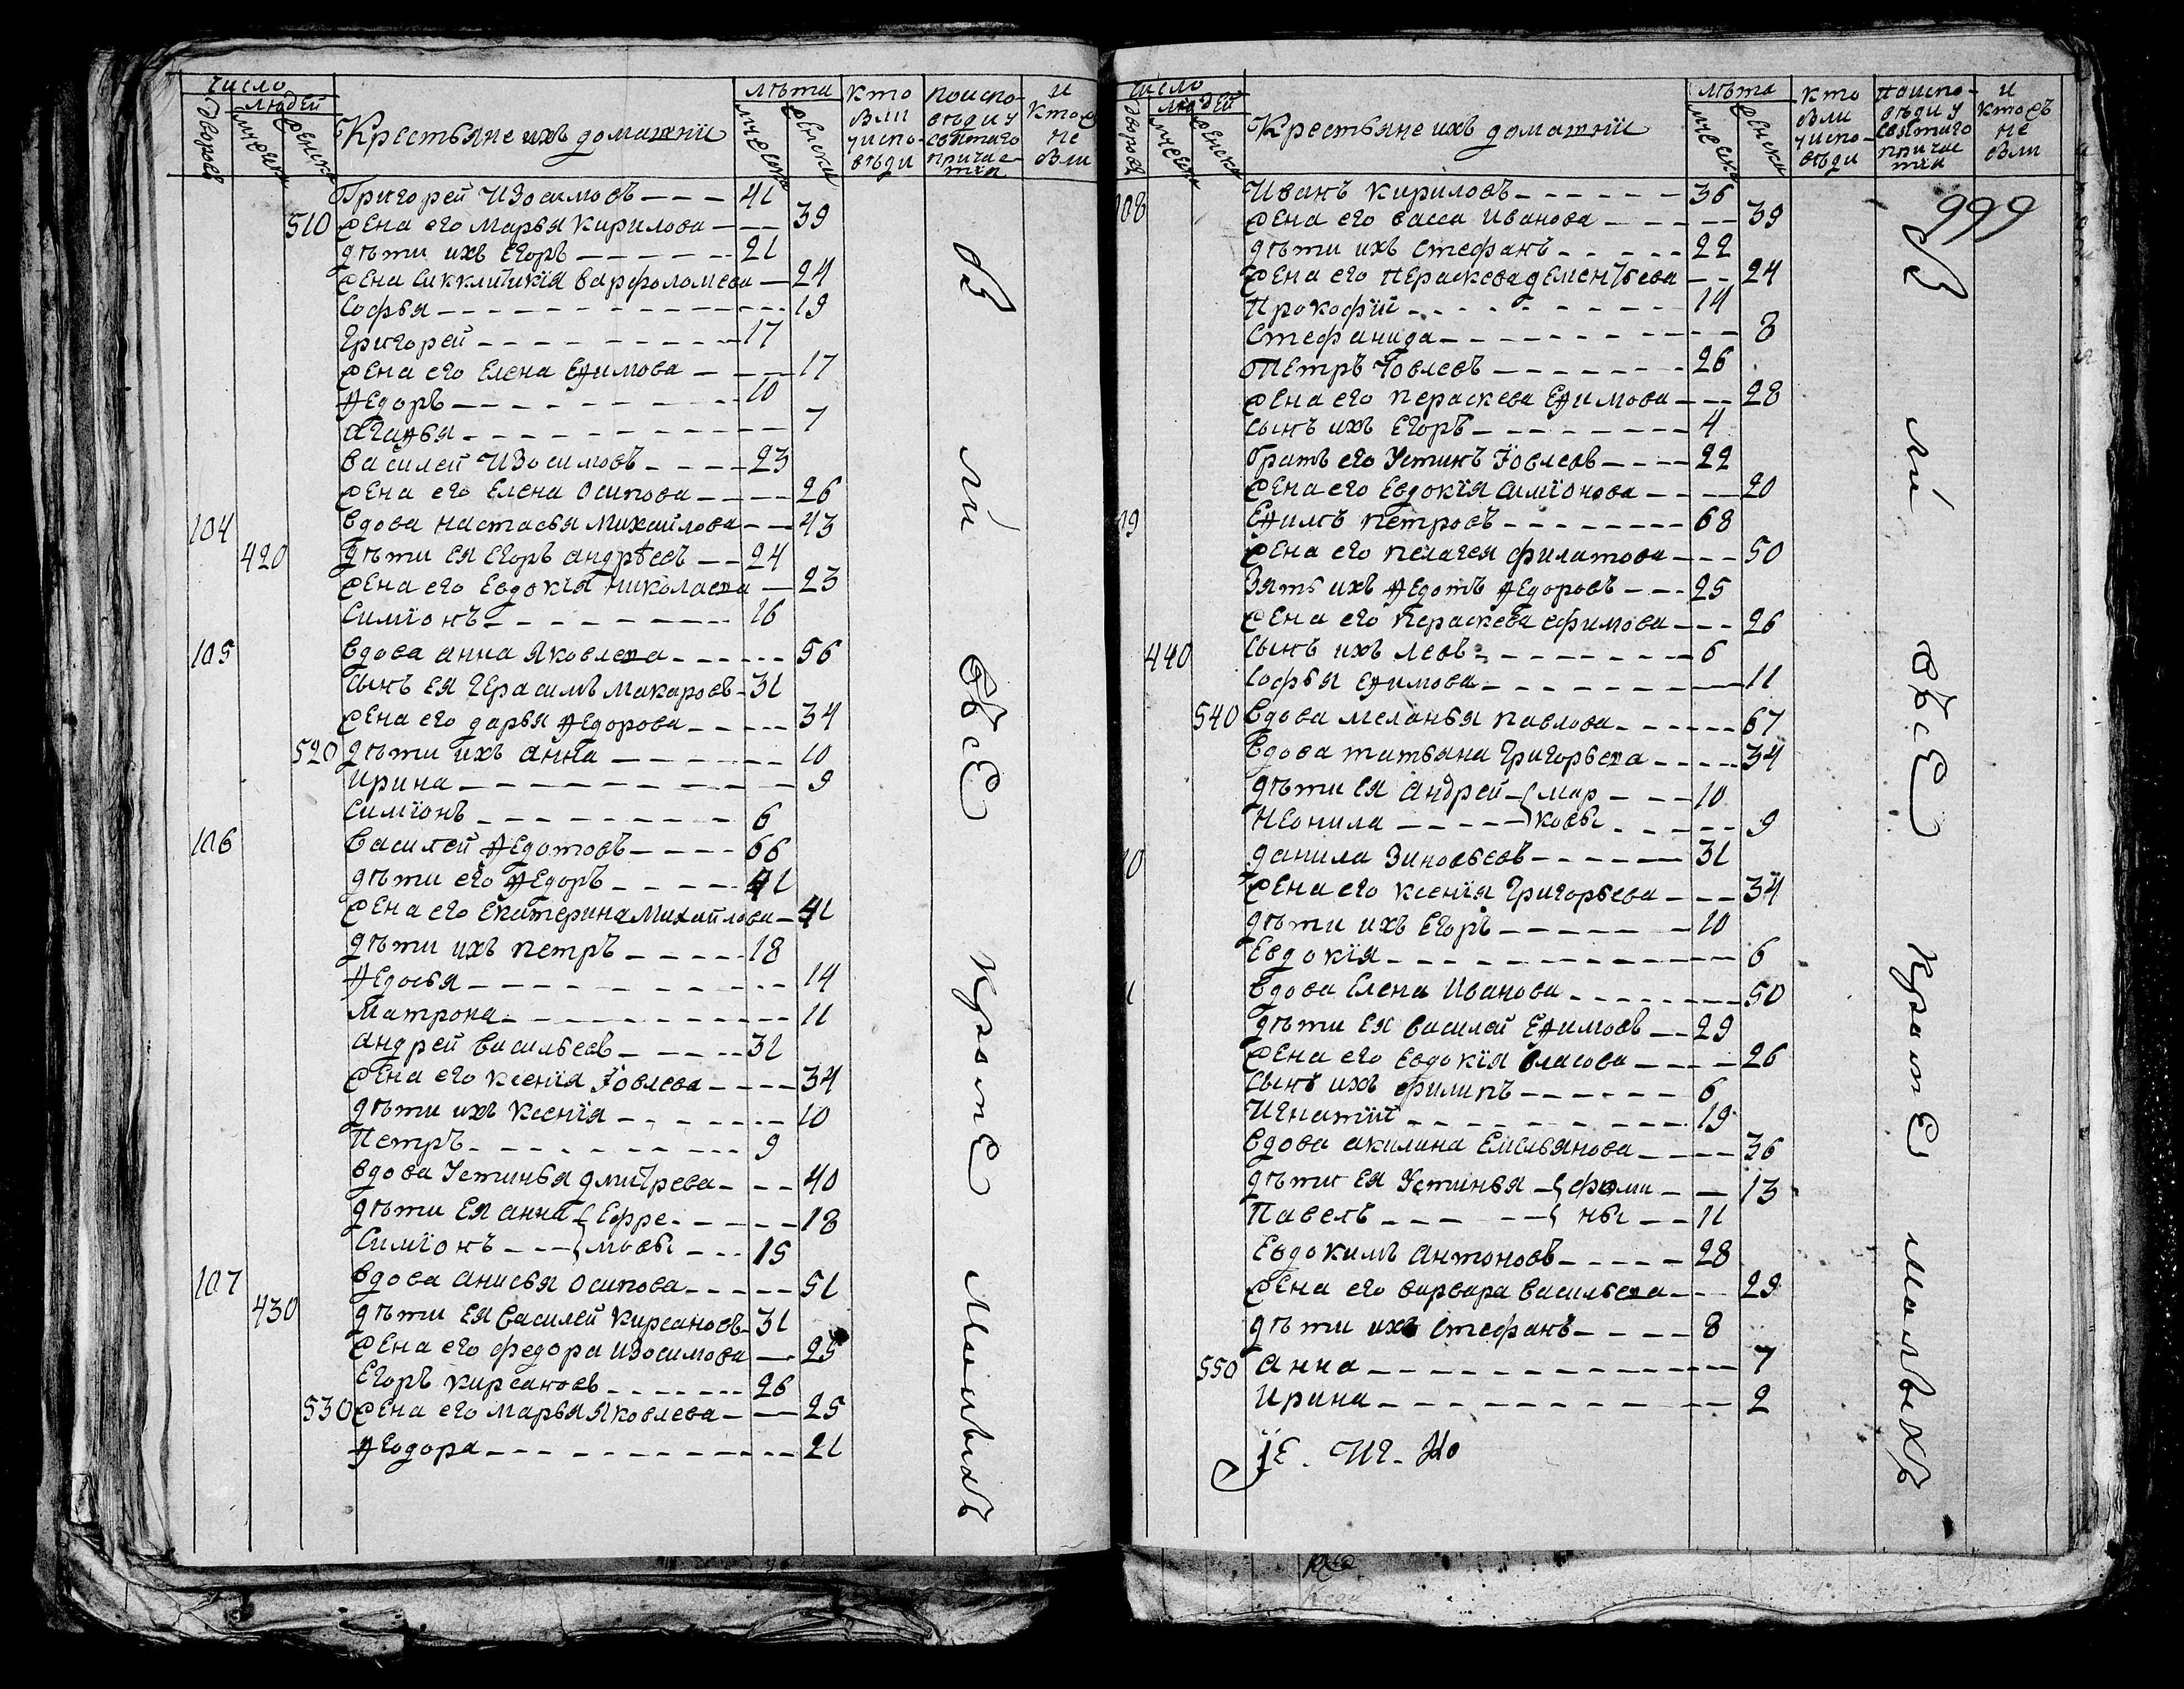 число
людей
дворовъ
мужеска
женска
Крестьяне ихъ домашнии
лѣта
мужеска
женска
кто были у исповѣди
по исповѣди у святаго причастїя
и кто ѳ не был
Григорей Изосимовъ 41
510 жена его марья кирилова 39
дѣти ихъ Егоръ 21
жена Сикклитикїя варфоломеева 24
Софья 19
Григорей 17
жена его Елена Еѳимова 17
Ѳедоръ 10
агаѳья 7
василей Изосимовъ 23
жена его Елена Осипова 26
104 вдова настасья михайлова 43
420 дѣти Ея Егоръ андрѣевъ 24
жена его Евдокїя николаева 23
Симїонъ 16
105 вдова анна Яковлева 56
сынъ Ея герасимъ макаровъ 31
жена его дарья Ѳедорова 34
520 дѣти ихъ анна 10
Ирина 9
Симїонъ 6
106 василей Ѳедотовъ 66
дѣти его Ѳедоръ 41
жена его Екатерина михайлова 41
дѣти ихъ петръ 18
Ѳедосья 14
матрона 11
андрей васильевъ 31
жена его ксенїя Іовлева 34
дѣти ихъ ксенїя 10
Петръ 9
вдова Устинья дмитрева 40
дѣти Ея анна Ефре 18
Симїонъ мовы 15
107 вдова анисья Осипова 51
430 дѣти Ея василей кирсановъ 31
жена его федора Изосимова 25
Егоръ кирсановъ 26
530 жена его марья Яковлева 25
Ѳеодора 21
были всѣ кромѣ малыхъ
число
людей
дворовъ
мужеска
женска
Крестьяне ихъ домашнии
лѣта
мужеска
женска
кто были у исповѣди
по исповѣди у святаго причастїя
и кто ѳ не был
999
108 Иванъ кириловъ 36
жена его васса Иванова 39
дѣти ихъ Стефанъ 22
жена его Пераскева дементьева 24
Прокофїй 14
Стефанида 8
Петръ Іовлевъ 26
жена его пераскева Еѳимова 28
сынъ ихъ Егоръ 4
братъ его Устинъ Іовлевъ 22
жена его Евдокїя симїонова 20
109 Еѳимъ петровъ 68
жена его пелагея филатова 50
Зять ихъ Ѳедотъ Ѳедоровъ 25
жена его пераскева ефимова 26
440 сынъ ихъ левъ 6
Софья Еѳимова 11
540 вдова меланья павлова 67
вдова татьяна григорьева 34
дѣти Ея андрей мар 10
Неонила ковы 9
10 данила Зиновьевъ 31
жена его ксенїя григорьева 34
дѣти ихъ Егоръ 10
Евдокїя 6
1 вдова Елена Иванова 50
дѣти Ея василей Еѳимовъ 29
жена его Евдокїя власова 26
сынъ ихъ филипъ 6
Игнатїй 19
вдова акилина Емельянова 36
дѣти Ея Устинья фоми 13
Павелъ ны 11
Евдокимъ антоновъ 28
жена его варвара васильева 29
дѣти ихъ Стефанъ 8
550 анна 7
Ирина 2
были всѣ кромѣ малыхъ